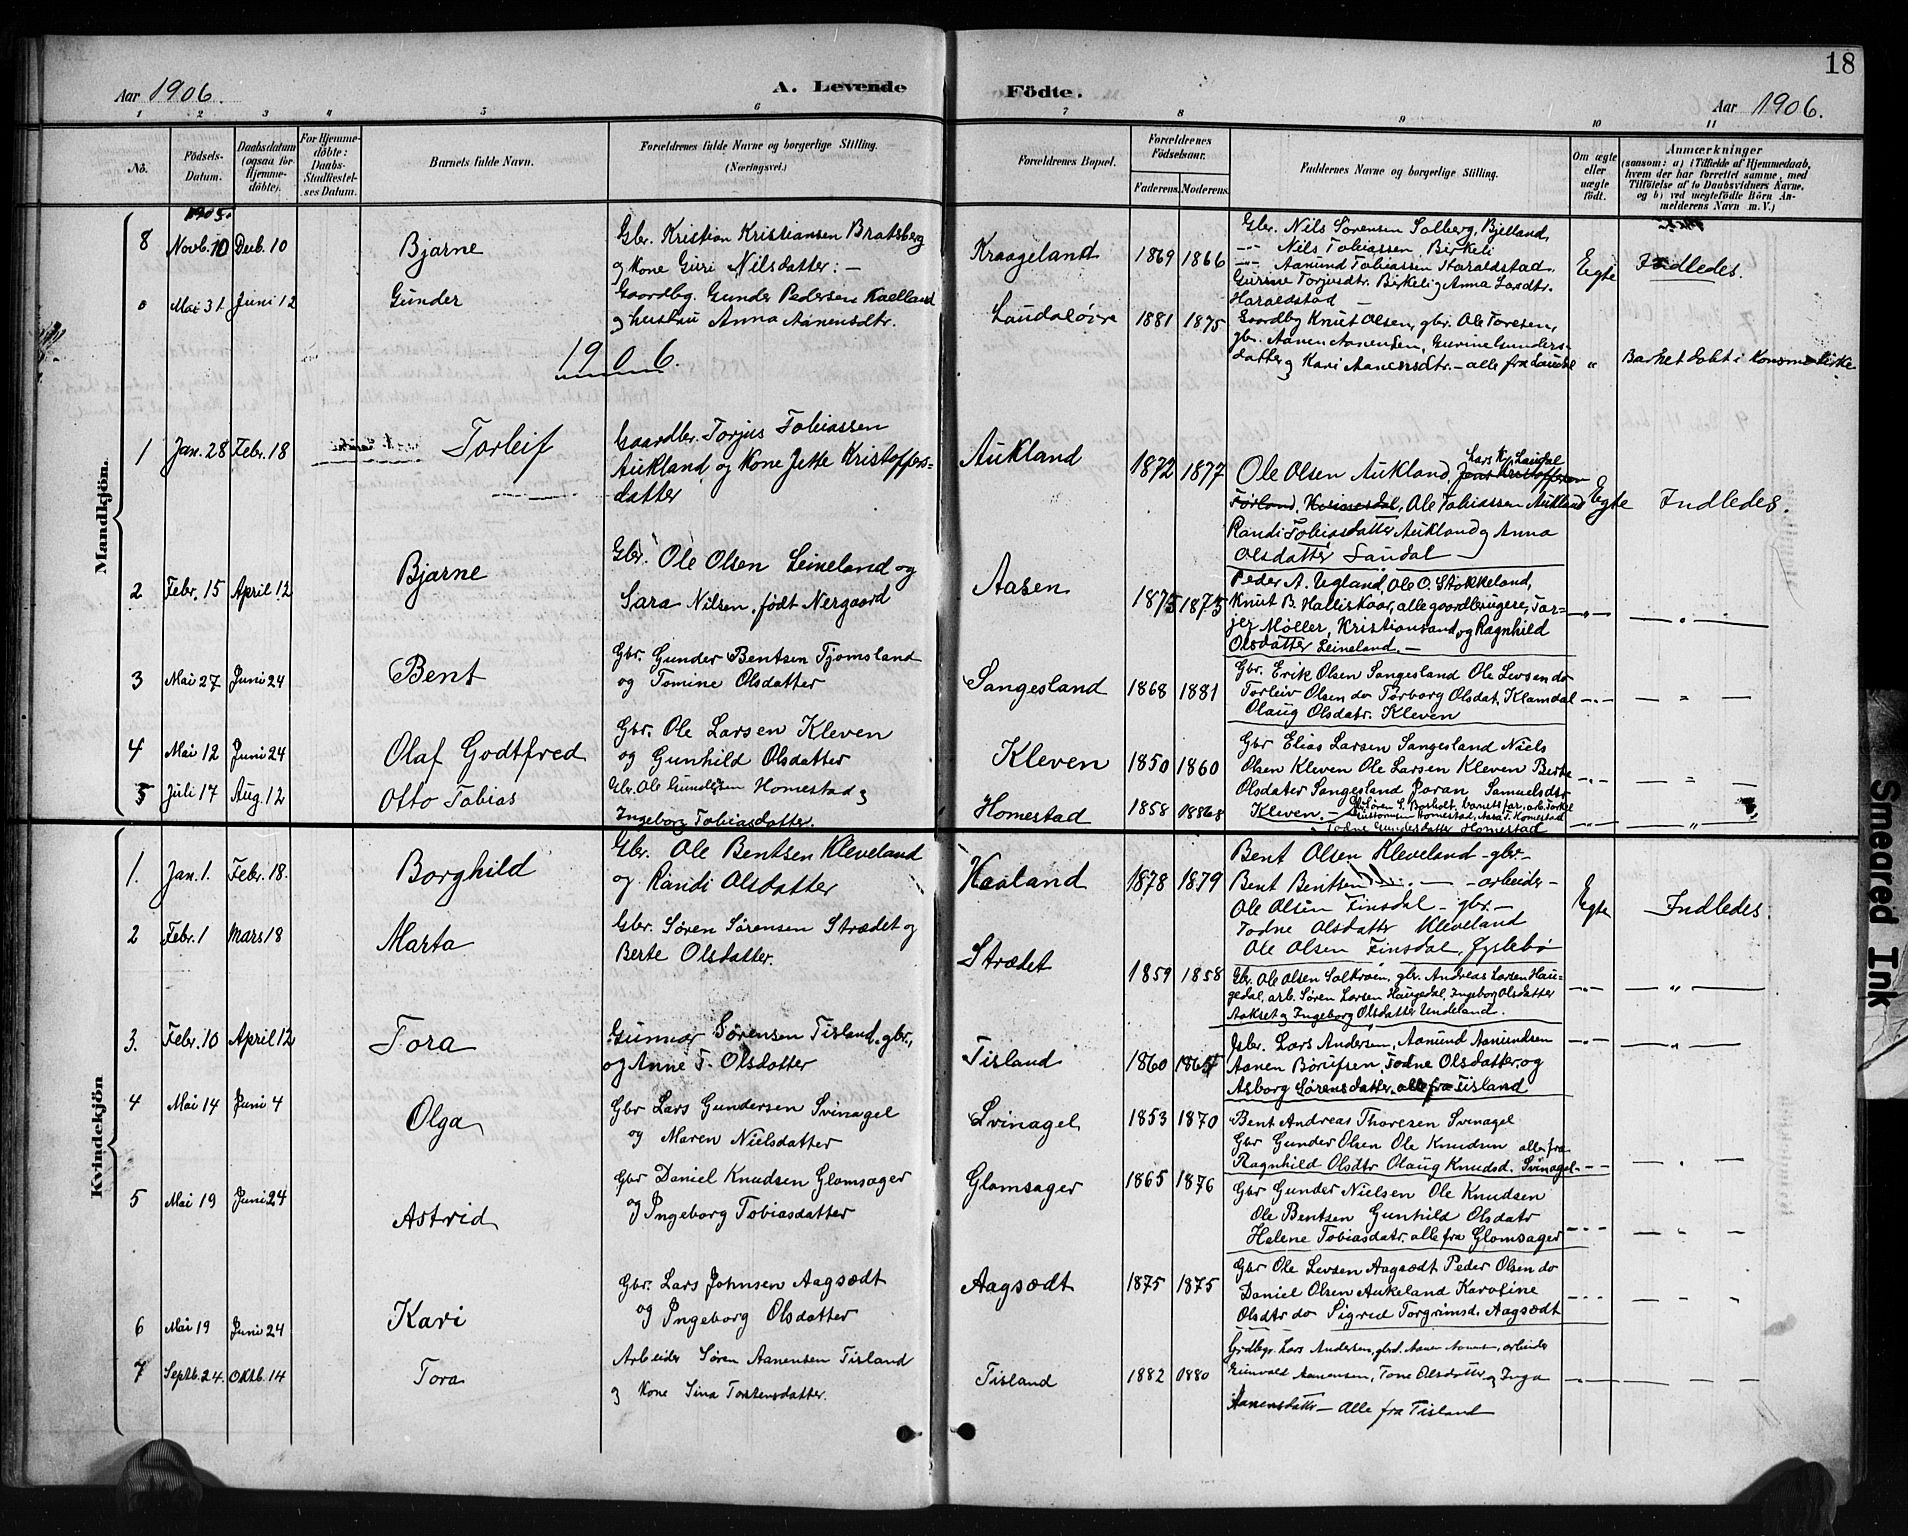 18
Aar 1906.
A. Levende Födte.
Aar 1906.
1 2 3 4 5 6 7 8 9 10 11
No.
Födsels-Datum.
Daabsdatum (ogsaa for Hjemmedöbte).
For Hjemmedöbte: Daabs-Stadfæstelses Datum.
Barnets fulde Navn.
Forældrenes fulde Navne og borgerlige Stilling. (Næringsvei.)
Forældrenes Bopæl.
Forældrenes Födselsaar.
Faderens. Moderens.
Faddernes Navne og borgerlige Stilling.
Om ægte eller uægte födt.
Anmærkninger
(saasom: a) i Tilfælde af Hjemmedaab, hvem der har forrettet samme, med Tilföielse af to Daabsvidners Navne, og b) ved uægtefödte Börn Anmelderens Navn m. V.)
Mandkjön.
1905.
8 Novb. 10 Decb. 10 Bjarne
Gbr. Kristian Kristiansen Bratsberg
og Kone Guri Nilsdatter: —
Kraageland 1869 1866
Gbr. Nils Sørensen Solberg, Bjelland,
-"- Nils Tobiassen Birkeli
-"- Aanund Tobiassen Haraldstad.
Gurine Torjusdtr. Birkeli og Anna Larsdtr.
Haraldstad —
Egte Indledes.
0 Mai 31 Juni 12 Gunder
Gaardbg. Gunder Pedersen Kaelland
og hustru Anna Aanensdtr.
Laudaløire 1881 1875
Gaardbg Knut Olsen, gbr. Ole Toresen,
gbr. Aanen Aanensen, Gurine Gunders-
datter og Kari Aanensdtr. — alle fra Laudal
" Barnet døbt i Konsmo kirke
1906.
1 Jan. 28 Febr. 18 Torleif
Gaardbr. Torjus Tobiassen
Aukland og Kone Jette Kristoffers-
datter
Aukland 1872 1877
Lars Kr. Laudal
Ole Olsen Aukland, Jens Kristoffersen
Ole Tobiassen Aukland
Randi Tobiasdatter Aukland og Anna
Olsdatter Laudal —
Egte Indledes.
2 Febr. 15 April 12 Bjarne
Gbr. Ole Olsen Leineland og
Sara Nilsen, født Nergaard
Aasen 1875 1875
Peder A. Ugland, Ole O. Stokkeland,
Knut B. Halliskaar, alle gaardbrugere, Tar-
jei Møller, Kristiansand og Ragnhild
Olsdatter Leineland. —
—"— — " —
3 Mai 27 Juni 24 Bent
Gbr. Gunder Bentsen Tjomsland
og Tomine Olsdatter
Sangesland 1868 1881
Gbr. Erik Olsen Sangesland Ole Levsen do
Torleiv Olsen do Torborg Olsdat. Klamdal
Olaug Olsdatr. Kleven
—"— — " —
4 Mai 12 Juni 24 Olaf Godtfred
Gbr. Ole Larsen Kleven
og Gunhild Olsdatter
Kleven 1850 1860
Gbr Elias Larsen Sangesland Niels
Olsen Kleven Ole Larsen Kleven Berte
Olsdater Sangesland Joran Samuelsdtr
Kleven. —
—"— — " —
5 Juli 17 Aug. 12 Otto Tobias
Gbr. Ole Gundersen Homestad og
Ingeborg Tobiasdatter.
Homestad 1858
Todne Gundersdatter Homestad
—"— — " —
Kvindekjön
1. Jan. 1. Febr. 18. Borghild
Gbr. Ole Bentsen Kleveland
og Randi Olsdatter
Haaland 1878 1879
Bent Olsen Kleveland — gbr. —
Bent Bentsen — " — — arbeider —
Ole Olsen Finsdal — gbr. —
Todne Olsdatter Kleveland
Ole Olsen Finsdal, Øyslebø
Egte Indledes.
2 Febr. 1 Mars 18 Marta
Gbr. Søren Sørensen Strædet og
Berte Olsdatter.
Strædet 1859 1858
Gbr. Ole Olsen Solkroen, gbr. Andreas Larsen Hau-
gedal, arb. Søren Larsen Haugedal, Ingeborg Olsdatter
Aakset og Ingeborg Olsdatter Undeland.
—"— — " —
3. Febr. 10 April 12 Tora
Gunnar Sørensen Tisland, gbr.,
og Anne T. Olsdatter
Tisland 1860
Gbr. Lars Andersen, Aanund Aanundsen
Aanen Børufsen, Todne Olsdatter, og
Asborg Sørensdatter, alle fra Tisland
—"— — " —
4 Mai 14 Juni 4 Olga
Gbr Lars Gundersen Svinagel
og Maren Nielsdatter
Svinagel 1853 1870
Bent Andreas Thoresen Svinagel
Gbr Gunder Olsen Ole Knudsen alle fra
Ragnhild Olsdtr Olaug Knudsd. Svinagel
—"— — " —
5 Mai 19 Juni 24 Astrid
Gbr Daniel Knudsen Glomsager
og Ingeborg Tobiasdatter
Glomsager 1865 1876
Gbr Gunder Nielsen Ole Knudsen
Ole Bentsen Gunhild Olsdatr
Helene Tobiasdatr. alle fra Glomsager
—"— — " —
6 Mai 19 Juni 24 Kari
Gbr. Lars Johnsen Aagsødt
og Ingeborg Olsdatter
Aagsødt 1875 1875
Gbr Ole Levsen Aagsødt Peder Olsen do
Daniel Olsen Aukeland Karoline
Olsdtr do Sigrid Torgrimsd. Aagsødt
—"— — " —
7 Septb. 24. Oktb. 14 Tora
Arbeider Søren Aanensen Tisland
og Kone Sina Torstensdatter.
Tisland 1882 0880
Grdbgr. Lars Andersen, gbrd. Aanen Aanens. arbeider
Grunvald Aanensen, Tone Olsdatter og Inga
Aanensdattr — Alle fra Tisland
—"— — " —
Smeared Ink